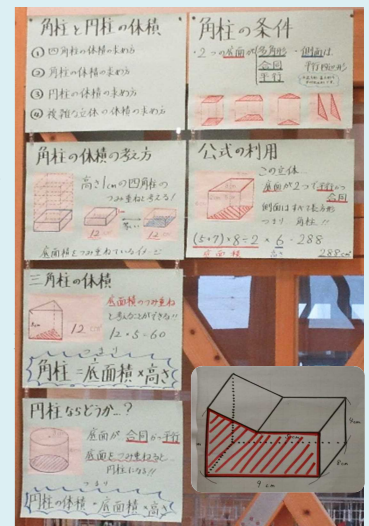 角柱と円柱の体積
① 四角柱の体積の求め方
② 角柱の体積の求め方
③ 円柱の体積の求め方
④ 複雑な立体の体積の求め方
角柱の条件
・2つの底面が
多角形
合同
平行
側面は、
角柱の体積の考え方
高さ1cmの四角柱の
つみ重ねと考える!
12
12
底面積をつみ重ねているイメージ
公式の利用
この立体
底面が2つで平行かつ
合同
側面はすべて長方形
つまり 角柱!!
(5+7)×8÷2×6=288
底面積
高さ
288
三角柱の体積
12
底面積のつみ重ね
と考えることができる!!
12×5=60
つまり
角柱=底面積×高さ
円柱ならどうか…?
底面が 合同かつ平行
底面をつみ重ねると
円柱になる!!
つまり
円柱の体積=底面積×高さ
9cm